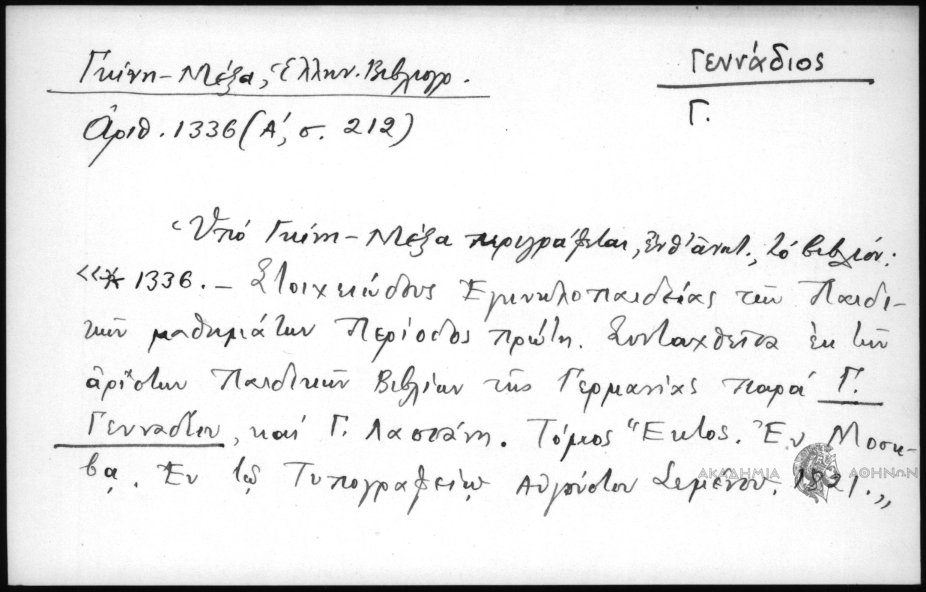 Γκίνη-Μέξα, Ἑλλην. Βιβλιογρ.
Γεννάδιος
Γ.
Ἀριθ. 1336 (Α΄, σ. 212)
Ὑπό Γκίνη-Μέξα περιγράφεται, ἔνθ' ἀνωτ., τό βιβλίον:
«* 1336. – Στοιχειώδους Ἐγκυκλοπαιδείας τῶν Παιδι-
κῶν μαθημάτων Περίοδος πρώτη. Συνταχθεῖσα ἐκ τῶν
ἀρίστων Παιδικῶν Βιβλίων τῆς Γερμανίας παρά Γ.
Γενναδίου, καί Γ. Λασσάνη. Τόμος Ἕκτος. Ἐν Μοσχ-
βᾳ. Ἐν τῷ Τυπογραφείῳ Αὐγούστου Σεμένου. 1821.„
ΑΚΑΔΗΜΙΑ ΑΘΗΝΩΝ